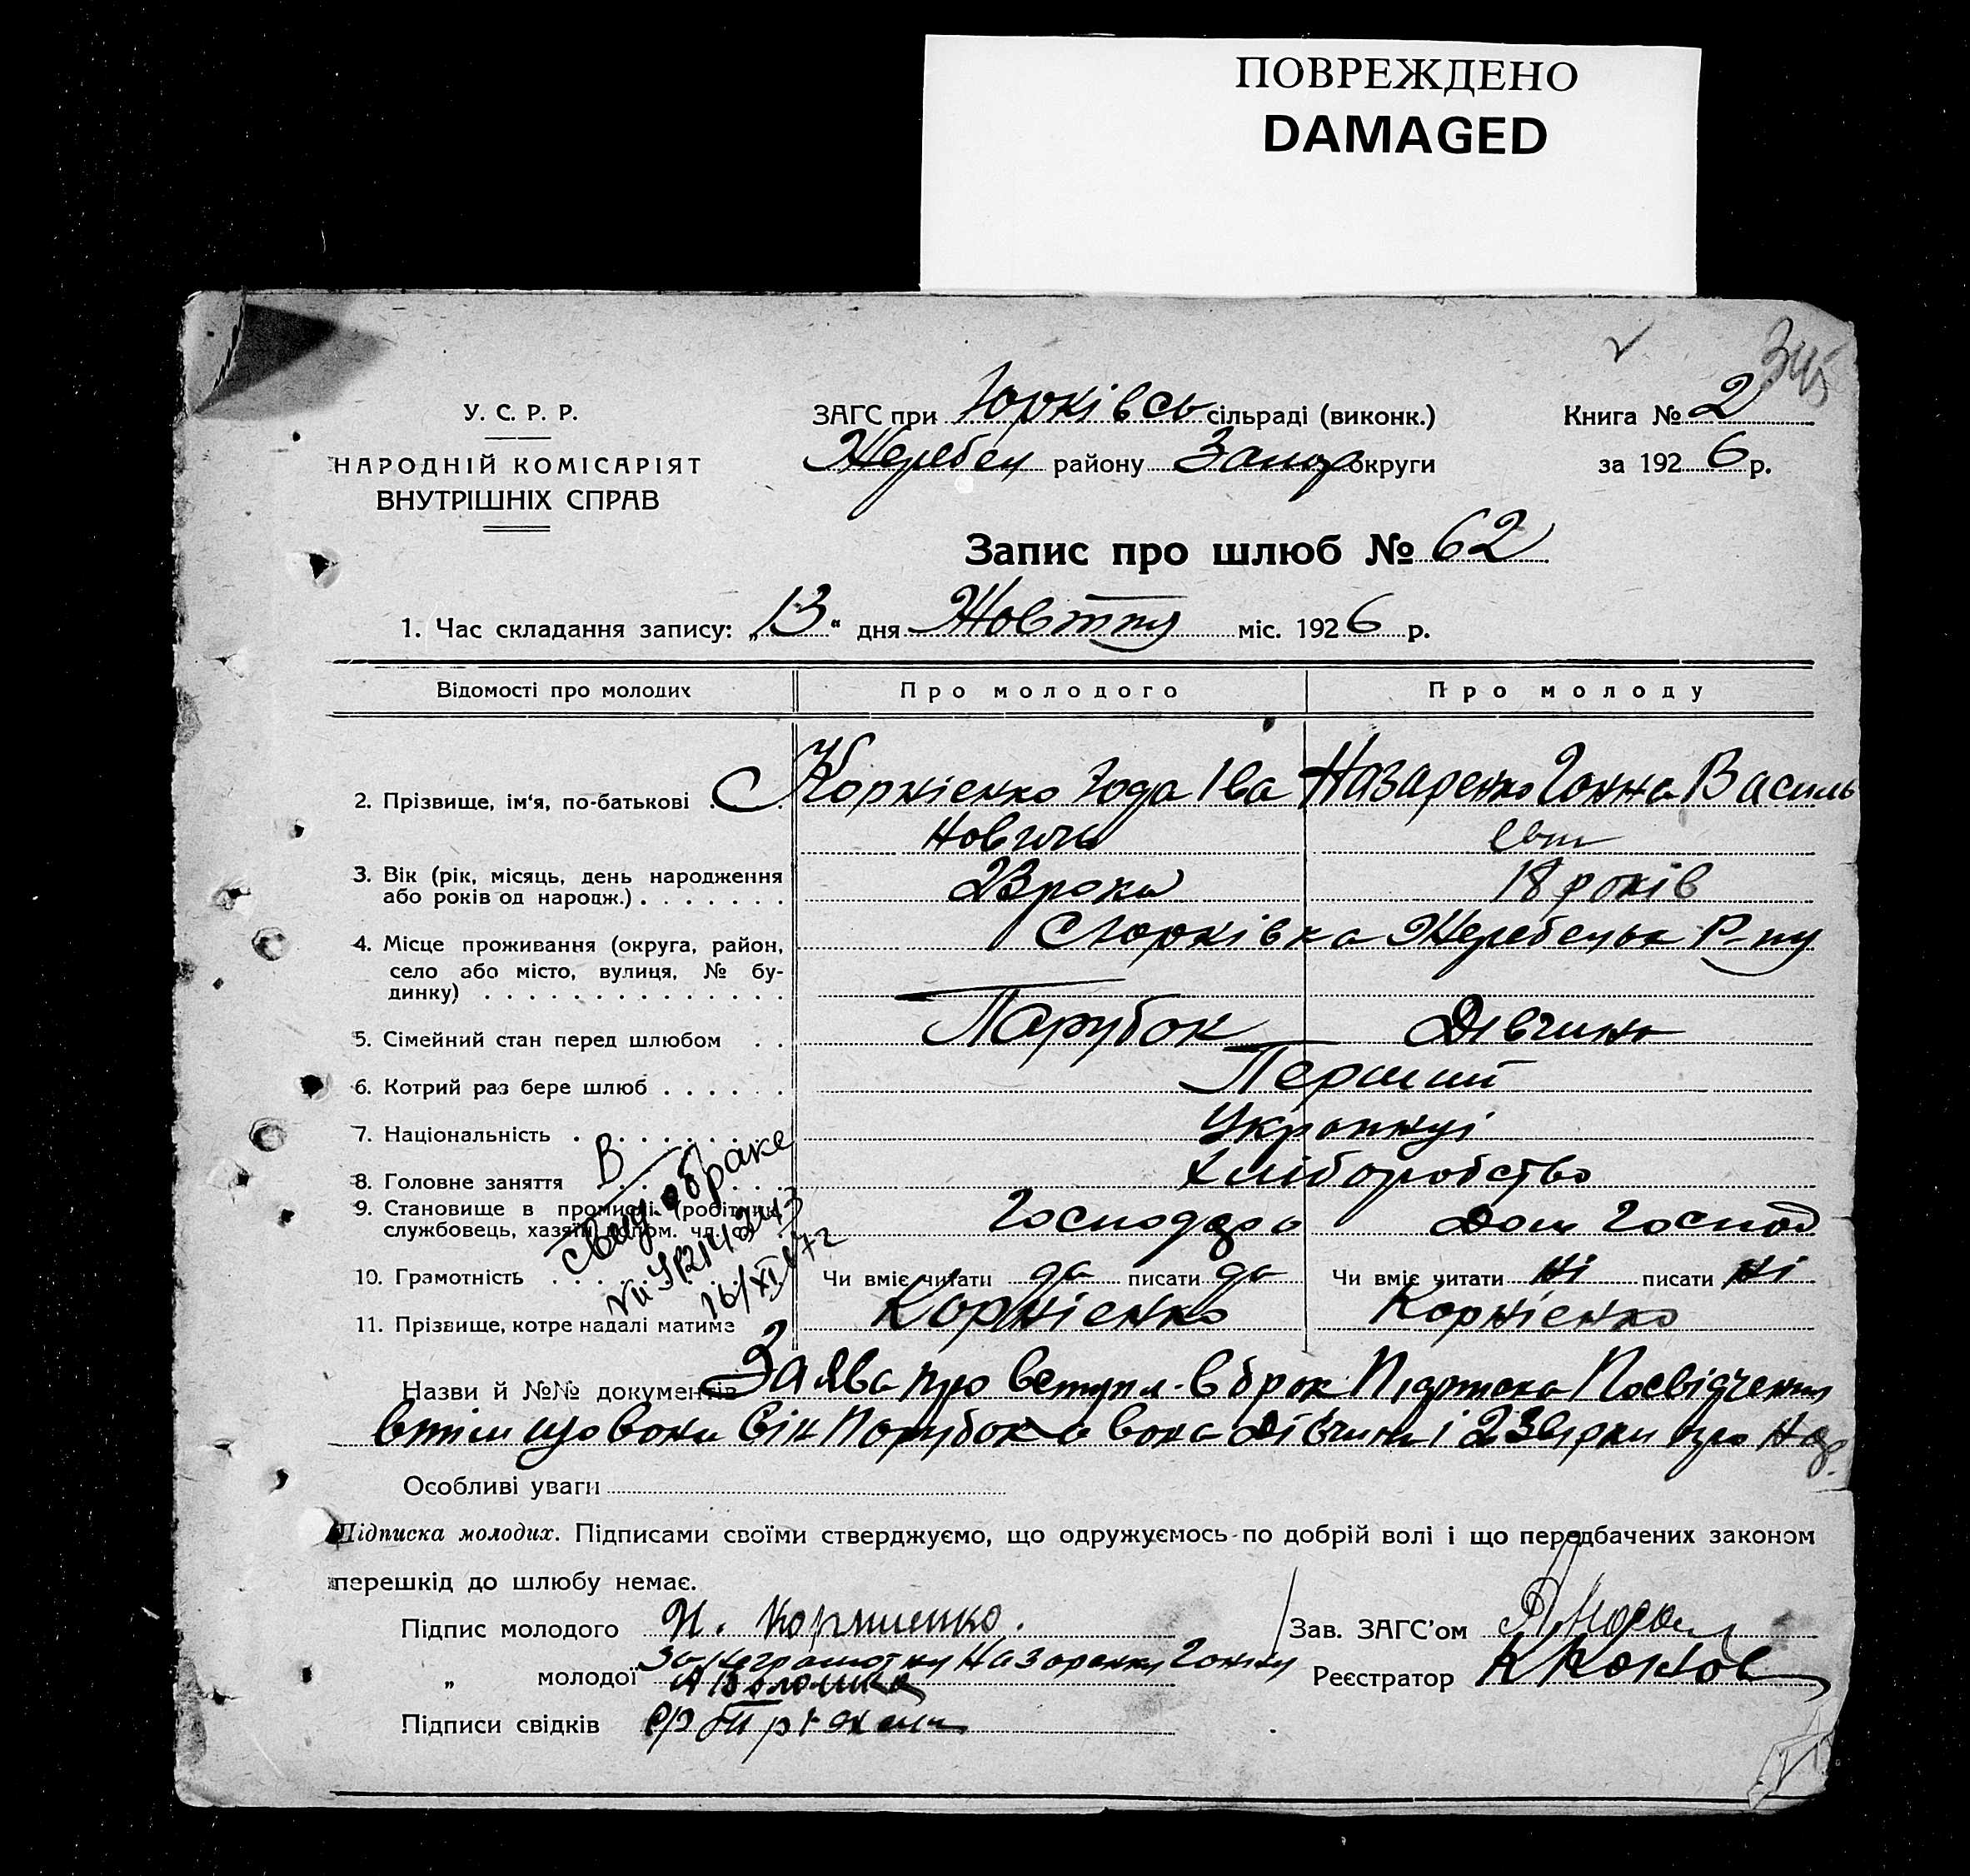 ПОВРЕЖДЕНО
DAMAGED
345
У. С. Р. Р.
НАРОДНІЙ КОМІСАРІЯТ
ВНУТРІШНІХ СПРАВ
ЗАГС при Юрківсь сільраді (виконк.)
Жеребец району Запор округи
Книга № 2
за 1926 р.
Запис про шлюб № 62
1. Час складання запису: „13“ дня Жовтня міс. 1926 р.
Відомості про молодих Про молодого Про молоду
2. Прізвище, ім‘я, по-батькові . Корнієнко Юда Іва Назаренко Ганна Василь
новичь евт
3. Вік (рік, місяць, день народження
або років од народж.) . . . . . . . 23 роки 18 років
4. Місце проживання (округа, район,
село або місто, вулиця, № бу-
динку) . . . . . . . . . . . . . . С Юрківка Жеребецьк Р-ну
5. Сімейний стан перед шлюбом . . Парубок Дівчина
6. Котрий раз бере шлюб . . . . . . Перший
7. Національність . . . . . . . . . Українці
8. Головне заняття Хліборобство
9. Становище в промислі (робітник,
службовець, хазяїн, допом. чл. Господарь Дом Господ
10. Грамотність . . . . Чи вміє читати да писати да Чи вміє читати ні писати ні
11. Прізвище, котре надалі матиме Корнієнко Корнієнко
В
свид. о браке
16/XI 72
Назви й №№ документів Заява про вступл. в брак Підписка Посвідчення
втім що вони Він Парубок а вона дівчина і 2 звірки про
Особливі уваги
Підписка молодих. Підписами своїми стверджуємо, що одружуємось по добрій волі і що передбачених законом
перешкід до шлюбу немає.
Підпис молодого И. Корниенко.
Зав. ЗАГС’ом
„ молодої За неграмотну Назаренку Ганну
А Волошка
Реєстратор
Підписи свідків